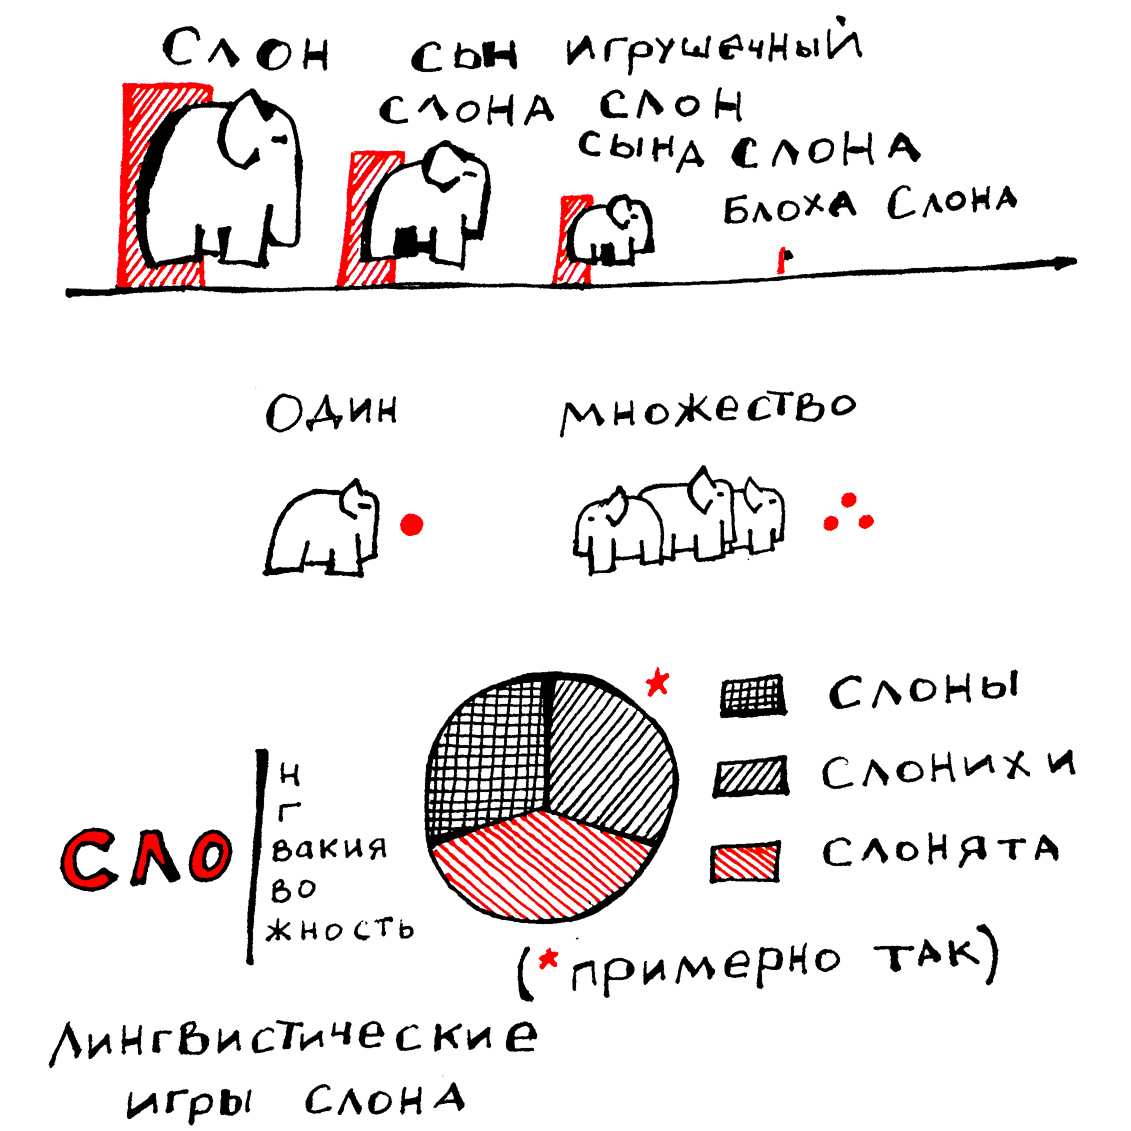 СЛОН
СЫН
СЛОНА
ИГРУШЕЧНЫЙ
СЛОН
СЫНА СЛОНА
БЛОХА СЛОНА
ОДИН
МНОЖЕСТВО
СЛОНЫ
СЛОНИХИ
СЛОНЯТА
(*ПРИМЕРНО ТАК)
СЛО
Н
Г
ВАКИЯ
ВО
ЖНОСТЬ
ЛИНГВИСТИЧЕСКИЕ
ИГРЫ СЛОНА